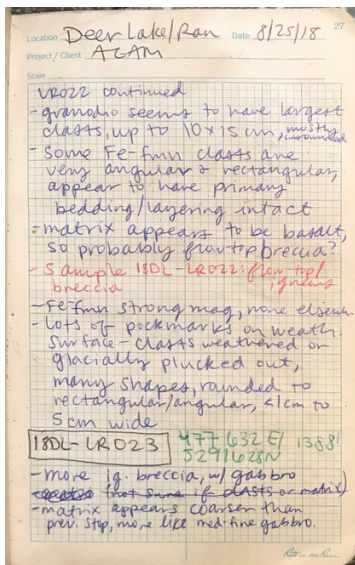 27
Location Deer Lake/Ran Date 8/25/18
Project / Client AGAM
Scale
LR022 continued
- granodio seems to have largest
clasts, up to 10x15cm, mostly
rounded
- some Fe-fmn clasts are
very angular & rectangular,
appear to have primary
bedding/layering intact
- matrix appears to be basalt,
so probably flow-top breccia?
- Sample 18DL-LR022: flow-top/
breccia
- Fe-fmn strong mag, none elsewh.
- lots of pockmarks on weath.
surface - clasts weathered or
glacially plucked out,
many shapes, rounded to
rectangular/angular, <1cm to
5cm wide
18DL-LR023 477632E/ 1388'
5291628N
- more ig. breccia, w/ gabbro
(not sure if clasts or matrix)
- matrix appears coarser than
prev. stop, more like med-fine gabbro.
Rite in the Rain